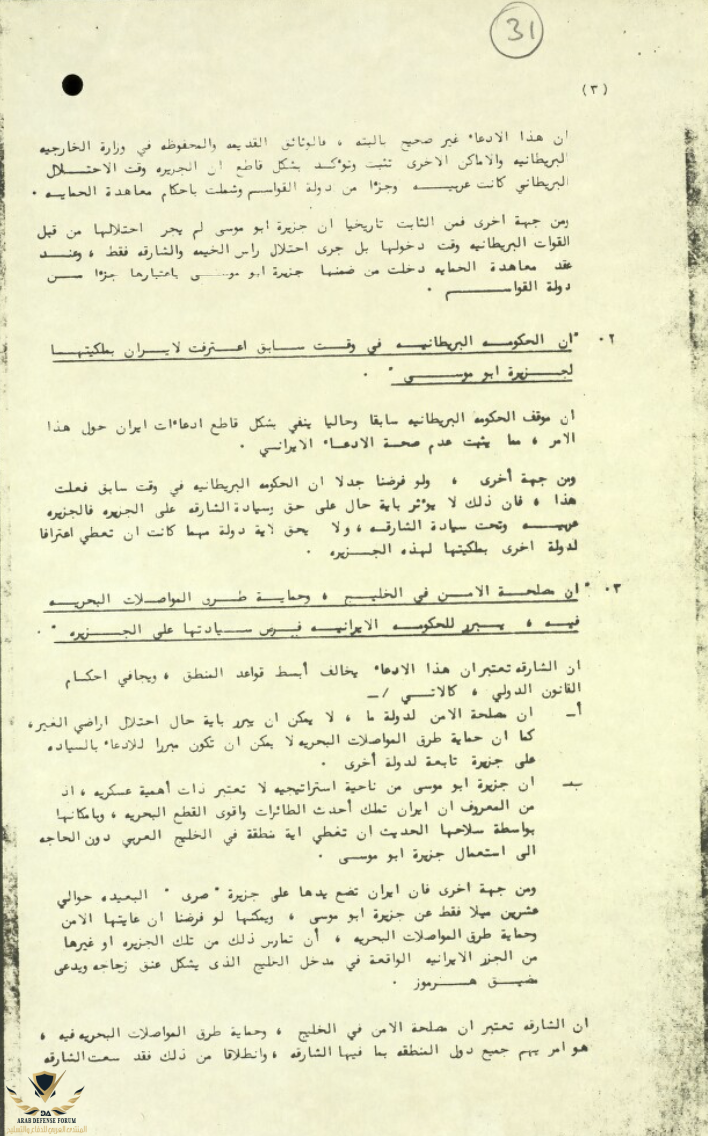 31
(٣)
ان هذا الادعاء غير صحيح بالبته ، فالوثائق القديمه والمحفوظه في وزارة الخارجيه
البريطانيه والاماكن الاخرى تثبت وتؤكد بشكل قاطع ان الجزيره وقت الاحتلال
البريطاني كانت عربيه وجزءا من دولة القواسم وشملت باحكام معاهدة الحمايه .
ومن جهة اخرى فمن الثابت تاريخيا ان جزيرة ابو موسى لم يجر احتلالها من قبل
القوات البريطانيه وقت دخولها بل جرى احتلال راس الخيمه والشارقه فقط ، وعند
عقد معاهدة الحمايه دخلت من ضمنها جزيرة ابو موسى باعتبارها جزءا من
دولة القواسم .
٠٢ "ان الحكومه البريطانيه في وقت سابق اعترفت لايران بملكيتها
لجزيرة ابو موسى" .
ان موقف الحكومه البريطانيه سابقا وحاليا ينفي بشكل قاطع ادعاءات ايران حول هذا
الامر ، مما يثبت عدم صحة الادعاء الايراني .
ومن جهة أخرى ، ولو فرضنا جدلا ان الحكومه البريطانيه في وقت سابق فعلت
هذا ، فان ذلك لا يؤثر باية حال على حق وسيادة الشارقه على الجزيره فالجزيره
عربيه وتحت سيادة الشارقه ، ولا يحق لاية دولة مهما كانت ان تعطي اعترافا
لدولة اخرى بملكيتها لهذه الجزيره .
٠٣ "ان مصلحة الامن في الخليج ، وحماية طرق المواصلات البحريه
فيه ، يبرر للحكومه الايرانيه فرض سيادتها على الجزيره" .
ان الشارقه تعتبر ان هذا الادعاء يخالف أبسط قواعد المنطق ، ويجافي احكام
القانون الدولي ، كالاتي /ـ
أـ ان مصلحة الامن لدولة ما ، لا يمكن ان يبرر باية حال احتلال اراضي الغير ،
كما ان حماية طرق المواصلات البحريه لا يمكن ان تكون مبررا للادعاء بالسياده
على جزيرة تابعة لدولة أخرى .
بـ ان جزيرة ابو موسى من ناحية استراتيجيه لا تعتبر ذات أهمية عسكريه ، اذ
من المعروف ان ايران تملك أحدث الطائرات واقوى القطع البحريه ، وبامكانها
بواسطة سلاحها الحديث ان تغطي اية منطقة في الخليج العربي دون الحاجه
الى استعمال جزيرة ابو موسى .
ومن جهة اخرى فان ايران تضع يدها على جزيرة "صرى" البعيده حوالي
عشرين ميلا فقط عن جزيرة ابو موسى ، ويمكنها لو فرضنا ان غايتها الامن
وحماية طرق المواصلات البحريه ، أن تمارس ذلك من تلك الجزيره او غيرها
من الجزر الايرانيه الواقعة في مدخل الخليج الذى يشكل عنق زجاجه ويدعى
مضيق هرموز .
ان الشارقه تعتبر ان مصلحة الامن في الخليج ، وحماية طرق المواصلات البحريه فيه ،
هو امر يهم جميع دول المنطقه بما فيها الشارقه ، وانطلاقا من ذلك فقد سعت الشارقه
DA
ARAB DEFENSE FORUM
المنتدى العربي للدفاع والتسليح